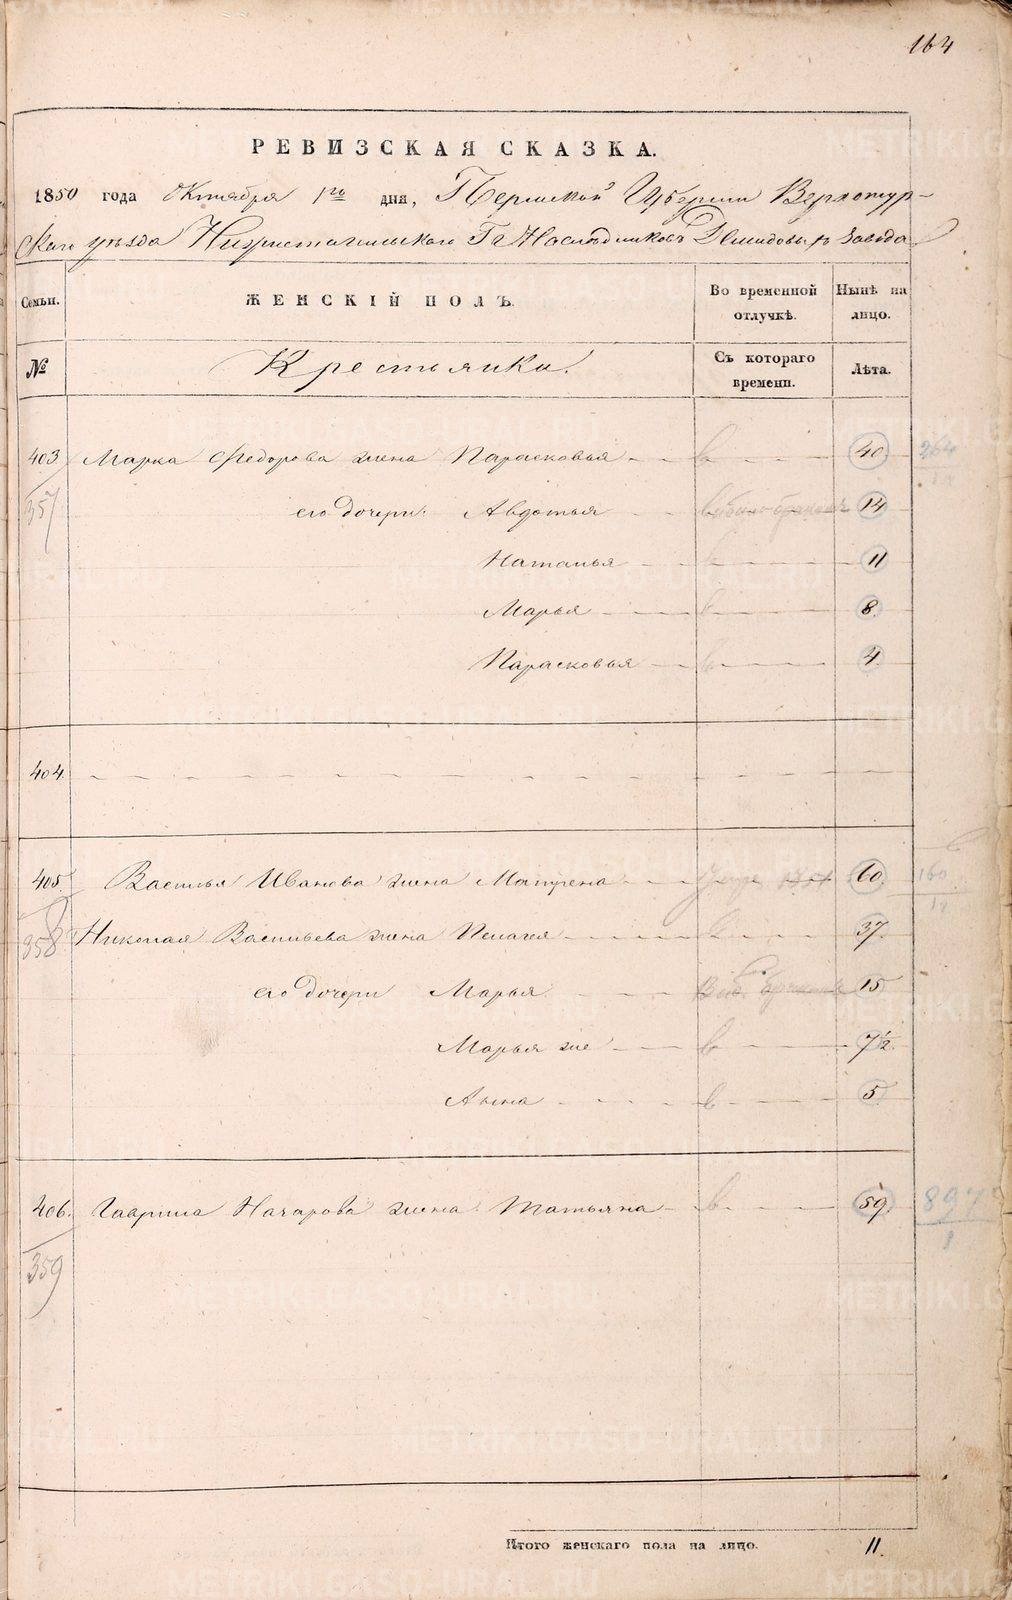 164
РЕВИЗСКАЯ СКАЗКА.
1850 года Октября 1го дня, Пермской Губернии Верхотур-
скаго уѣзда Нижнетагильскаго Гг. Наслѣдниковъ Демидовыхъ завода
Семьи. ЖЕНСКІЙ ПОЛЪ. Во временной отлучкѣ. Нынѣ на лицо.
№ Крестьянки. Съ котораго времени. Лѣта.
403 Марка Федорова жена Парасковья 40. 264
357 его дочери: Авдотья 14
Наталья 11
Марья 8.
Парасковья 4
404.
405. Василья Иванова жена Матрена 60. 160
358 Николая Васильева жена Пелагея 37.
его дочери Марья 15
Марья же 7½.
Анна 5
406. Гаврила Назарова жена Татьяна 59. 897
359
Итого женскаго пола на лицо. 11.
METRIKI.GASO-URAL.RU